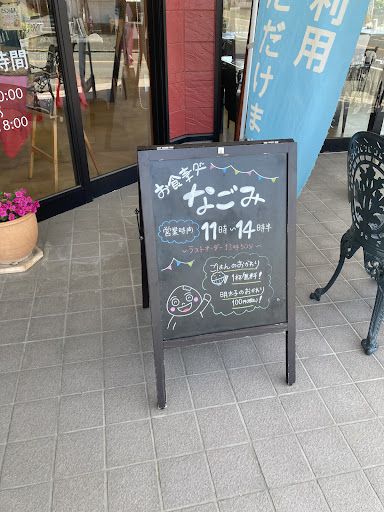 時間
利用
ただけま
お食事処
なごみ
営業時間 11時~14時半
ラストオーダー 13時50分
ごはんのおかわり
1杯無料!
明太子のおかわり
100円(税込)!